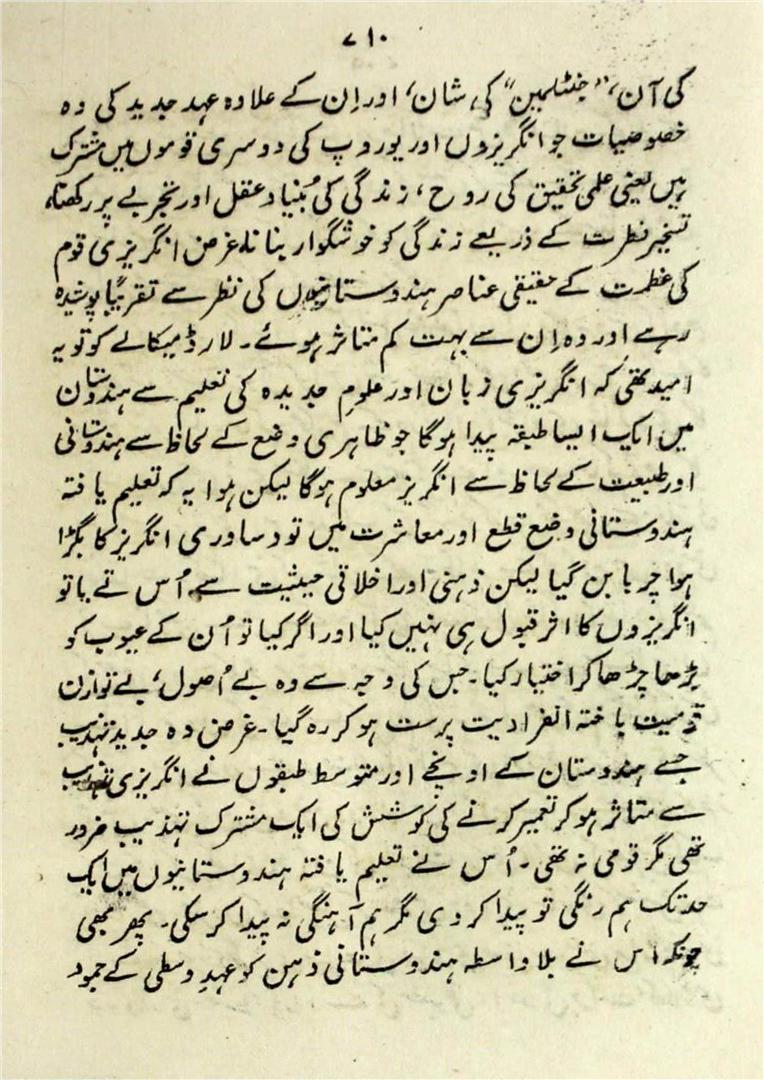 ۷۱۰
کی آن، "جنٹلمین" کی شان، اور اِن کے علاوہ عہد جدید کی وہ
خصوصیات جو انگریزوں اور یوروپ کی دوسری قوموں میں مشترک
ہیں یعنی علمی تحقیق کی روح، زندگی کی بُنیاد عقل اور تجربے پر رکھنا،
تسخیر فطرت کے ذریعے زندگی کو خوشگوار بنانا۔ غرض انگریزی قوم
کی عظمت کے حقیقی عناصر ہندوستانیوں کی نظر سے تقریباً پوشیدہ
رہے اور وہ اِن سے بہت کم متاثر ہوئے۔ لارڈ میکالے کو تو یہ
امید تھی کہ انگریزی زبان اور علومِ جدیدہ کی تعلیم سے ہندوستان
میں ایک ایسا طبقہ پیدا ہوگا جو ظاہری وضع کے لحاظ سے ہندوستانی
اور طبیعت کے لحاظ سے انگریز معلوم ہوگا لیکن ہوا یہ کہ تعلیم یافتہ
ہندوستانی وضع قطع اور معاشرت میں تو دساوری انگریز کا بگڑا
ہوا چربا بن گیا لیکن ذہنی اور اخلاقی حیثیت سے اُس نے یا تو
انگریزوں کا اثر قبول ہی نہیں کیا اور اگر کیا تو اُن کے عیوب کو
بڑھا چڑھا کر اختیار کیا۔ جس کی وجہ سے وہ بے اُصول، بے توازن
قومیت باختہ انفرادیت پرست ہو کر رہ گیا۔ غرض وہ جدید تہذیب
جسے ہندوستان کے اونچے اور متوسط طبقوں نے انگریزی تہذیب
سے متاثر ہو کر تعمیر کرنے کی کوشش کی ایک مشترک تہذیب ضرور
تھی مگر قومی نہ تھی۔ اُس نے تعلیم یافتہ ہندوستانیوں میں ایک
حد تک ہم رنگی تو پیدا کر دی مگر ہم آہنگی نہ پیدا کر سکی۔ پھر بھی
چونکہ اس نے بلا واسطہ ہندوستانی ذہن کو عہدِ وسطی کے جمود